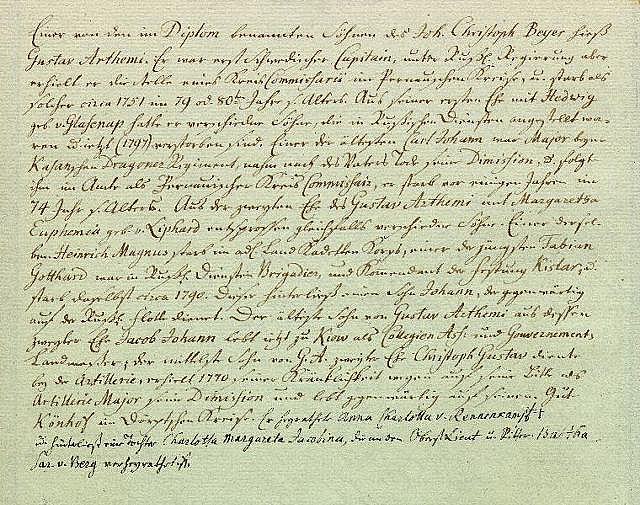 Einer von den im Diplom benannten Söhnen des Joh. Christoph Beyer hieß
Gustav Arthemi. Er war erst Schwedischer Capitain, unter Rußl. Regierung aber
erhielt er die Stelle eines Kreis Commissarii im Pernauschen Kreise, u. starb als
solcher circa 1751 im 79 od. 80ten Jahr s. Alters. Aus seiner ersten Ehe mit Hedwig
geb v. Glasenap hatte er verschiedne Söhne, die in Rußischen Diensten angestellt wa-
ren u. ietzt (1797) verstorben sind. Einer der ältesten Carl Johann war Major beym
Kasanschen Dragoner Regiment, nahm nach des Vaters Tode seine Dimission, u. folgte
ihm im Amte als Pernauischer Kreis Commissair, er starb vor einigen Jahren im
74 Jahr s. Alters. Aus der zweyten Ehe des Gustav Arthemi mit Margaretha
Euphemia geb v. Liphard entsprossen gleichfalls verschiedne Söhne. Einer dersel-
ben Heinrich Magnus starb im adl. Land Kadetten Korps, einer der jüngsten Fabian
Gotthard war in Rußl. Diensten Brigadier, und Komendant der Festung Kislar, u.
starb daselbst circa 1790. Dieser hinterließ einen Sohn Johann, der gegenwärtig
auf der Rußl. Flotte dienet. Der älteste Sohn von Gustav Arthemi aus dessen
zweyter Ehe Jacob Johann lebt ietzt zu Kiow als Collegien Ass. und Gouvernements
Landmesser; der mittlste Sohn von G. A. zweyter Ehe Christoph Gustav diente
bey der Artillerie, erhielt 1770, seiner Kränklichkeit wegen auf seine Bitte als
Artillerie Major seine Dimission und lebt gegenwärtig auf seinem Gut
Könhof im Dörptschen Kreise. Er heyrathete Anna Charlotta v. Rennenkampff
u. hinterließ eine Tochter Charlotta Margareta Jacobina, die an den Obrist Lieut. u. Ritter Baltha
sar v. Berg verheyrathet ist.